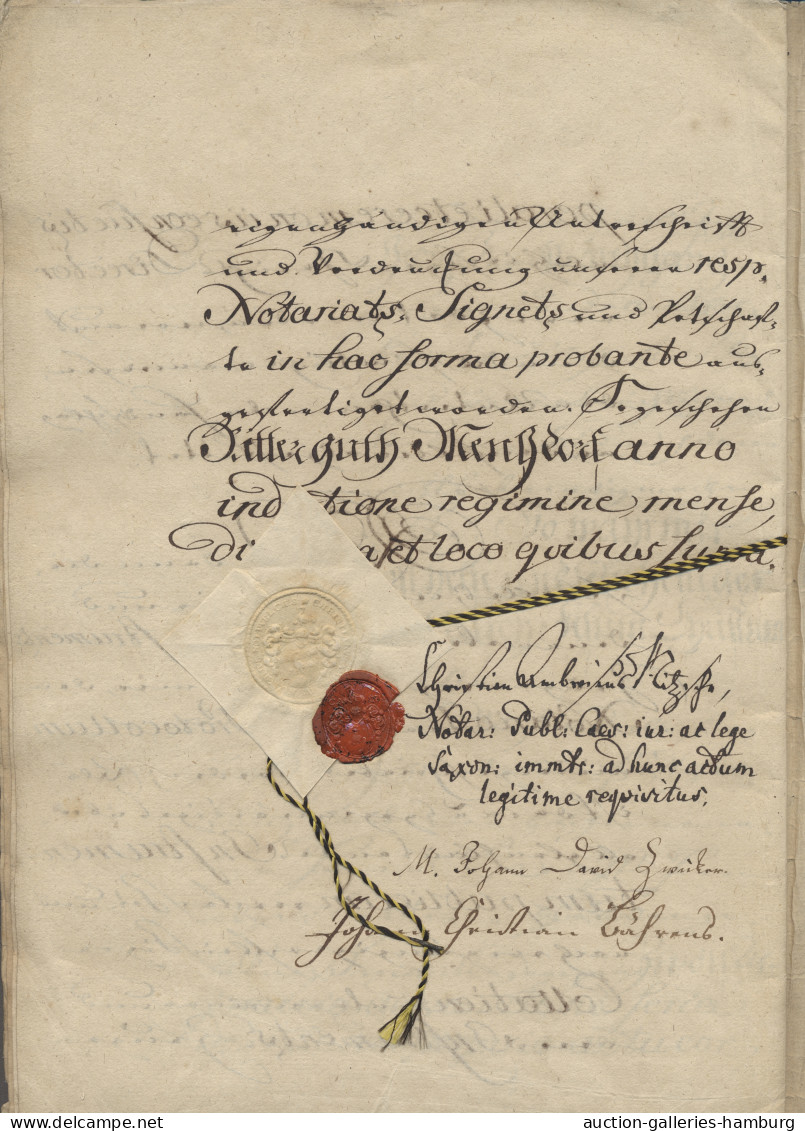 eigenhändigen Unterschrifft
und Vordruckung unserer resp.
Notariats-Signets und Petschaf-
te in hac forma probante aus-
gefertiget worden. So geschehen
Ritterguth anno
ind tione regimine, mense,
di et loco qvibus supra.
Christian
Notar: Publ: Caes: iur: at lege
Saxon: immtr: ad hunc actum
legitime reqvisitus.
M. Johann David Zwicker.
Johann Christian Bährens.
auction-galleries-hamburg